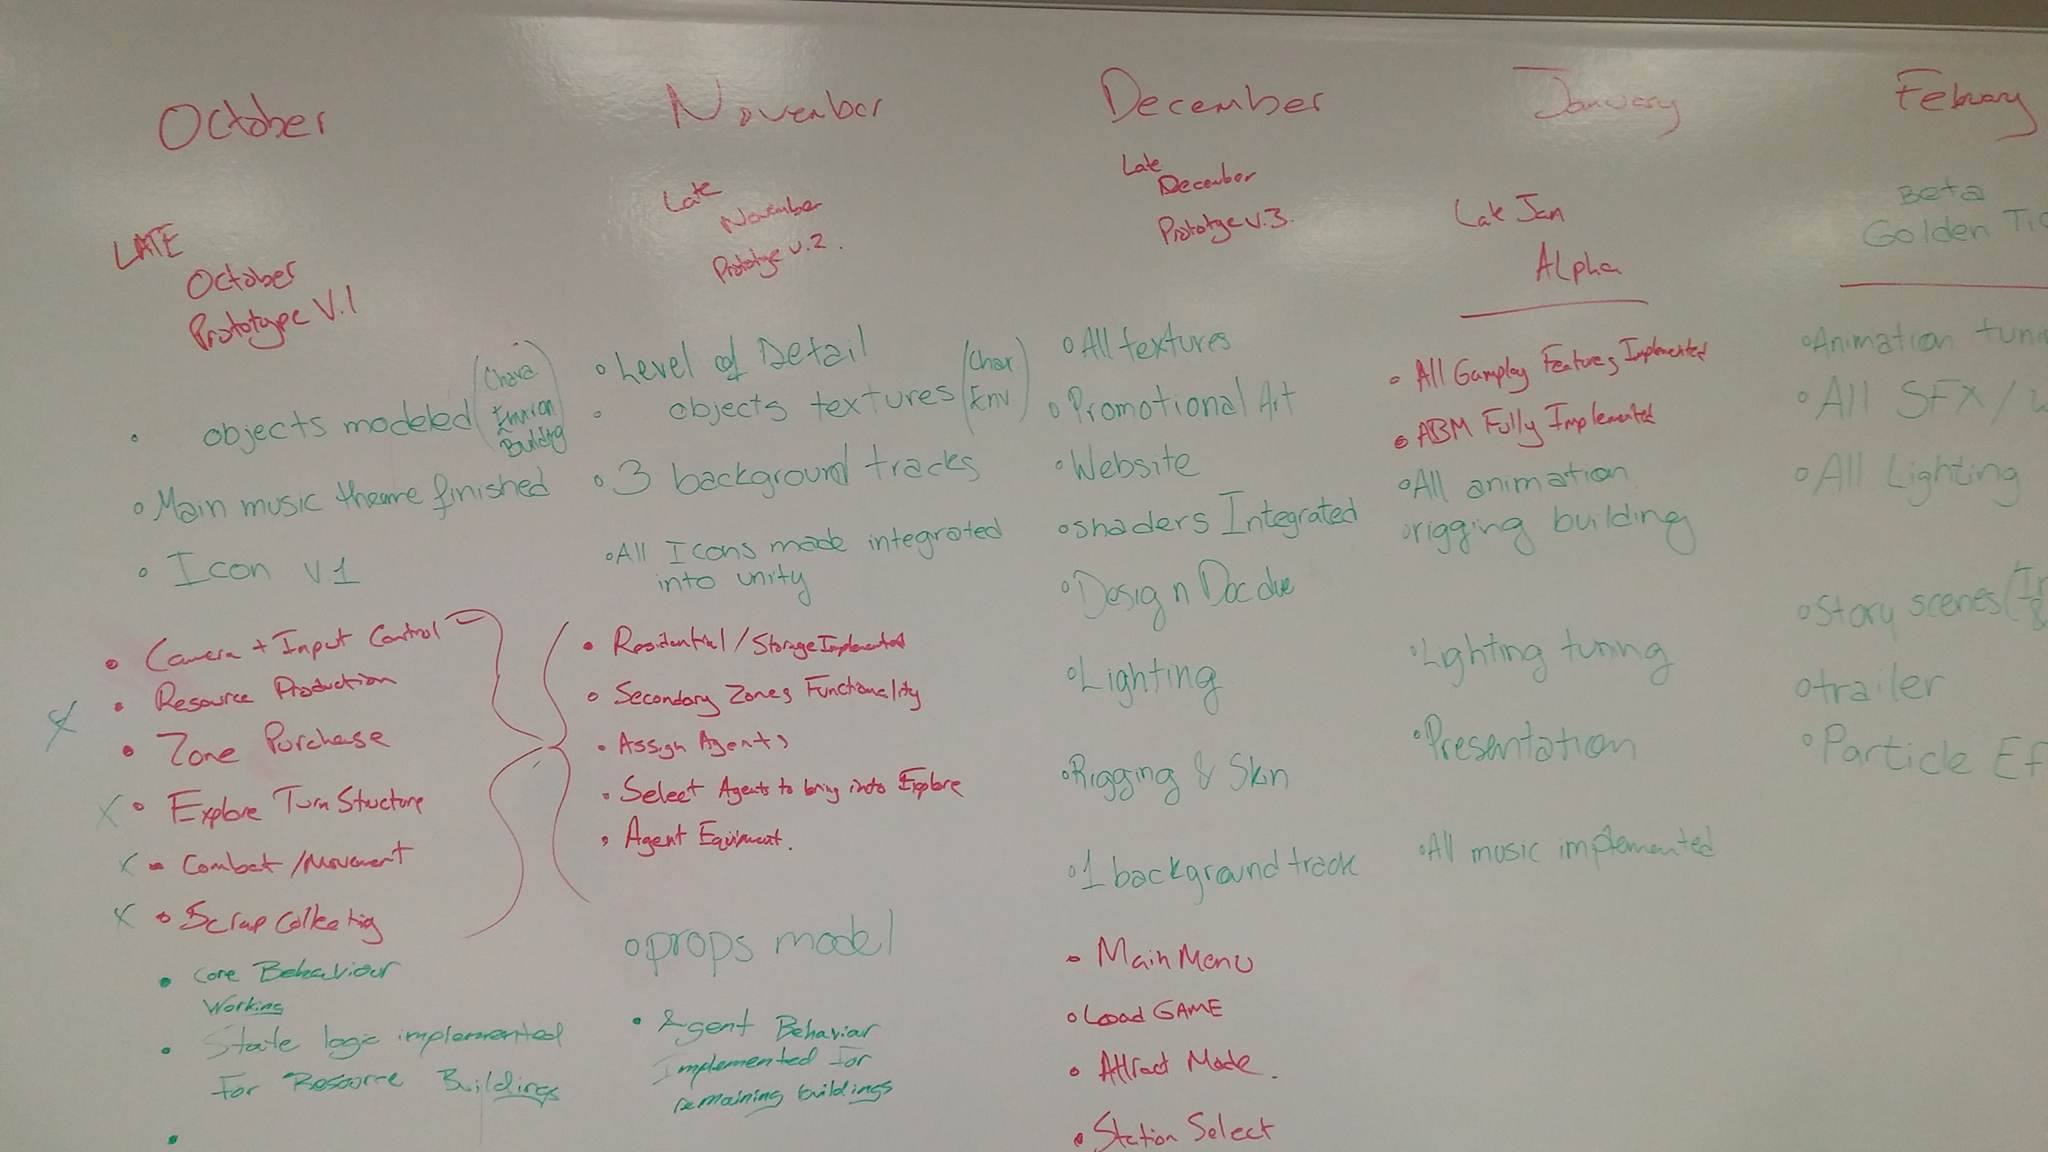 October
LATE
October
Prototype V.1
• objects modeled (Chara
Environ
Building)
• Main music theme finished
• Icon v1
• Camera + Input Control
• Resource Production
X
• Zone Purchase
X • Explore Turn Structure
X • Combat/Movement
X • Scrap Collecting
• Core Behaviour
Working
• State logic implemented
For Resource Buildings
November
Late
November
Prototype v.2.
• Level of Detail
• objects textures (Char
Env)
• 3 background tracks
• All Icons made integrated
into unity
• Residential/Storage Implemented
• Secondary Zones Functionality
• Assign Agents
• Select Agents to bring into Explore
• Agent Equipment.
• props model
• Agent Behaviar
Implemented For
remaining buildings
December
Late
December
Prototype v.3.
• All textures
• Promotional Art
• Website
• shaders Integrated
• Design Doc due
• Lighting
• Rigging & Skin
• 1 background track
• Main Menu
• Load GAME
• Attract Mode.
• Station Select
January
Late Jan
Alpha
• All Gameplay Features Implemented
• ABM Fully Implemented
• All animation
• rigging building
• Lighting tuning
• Presentation
• All music implemented
Febuary
Beta
Golden
• Animation
• All SFX/
• All Lighting
• Story scenes
• trailer
• Particle